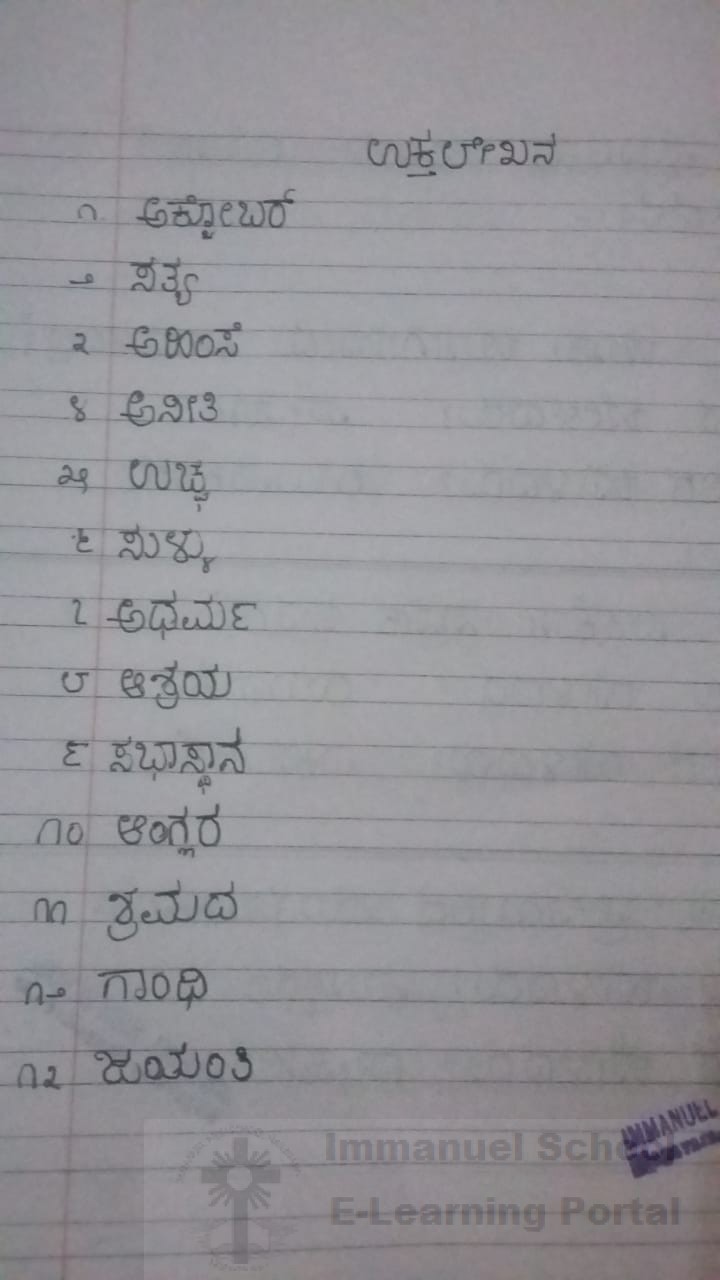 ಉಕ್ತಲೇಖನ
೧ ಅಕ್ಟೋಬರ್
೨ ಸತ್ಯ
೩ ಅಹಿಂಸೆ
೪ ಅನೀತಿ
೫ ಉಚ್ಛ
೬ ಸುಳ್ಳು
೭ ಅಧರ್ಮ
೮ ಆಶ್ರಯ
೯ ಸಭಾಸ್ಥಾನ
೧೦ ಆಂಗ್ಲರ
೧೧ ಶ್ರಮದ
೧೨ ಗಾಂಧಿ
೧೩ ಜಯಂತಿ
IMMANUEL
Immanuel Scho
E-Learning Portal